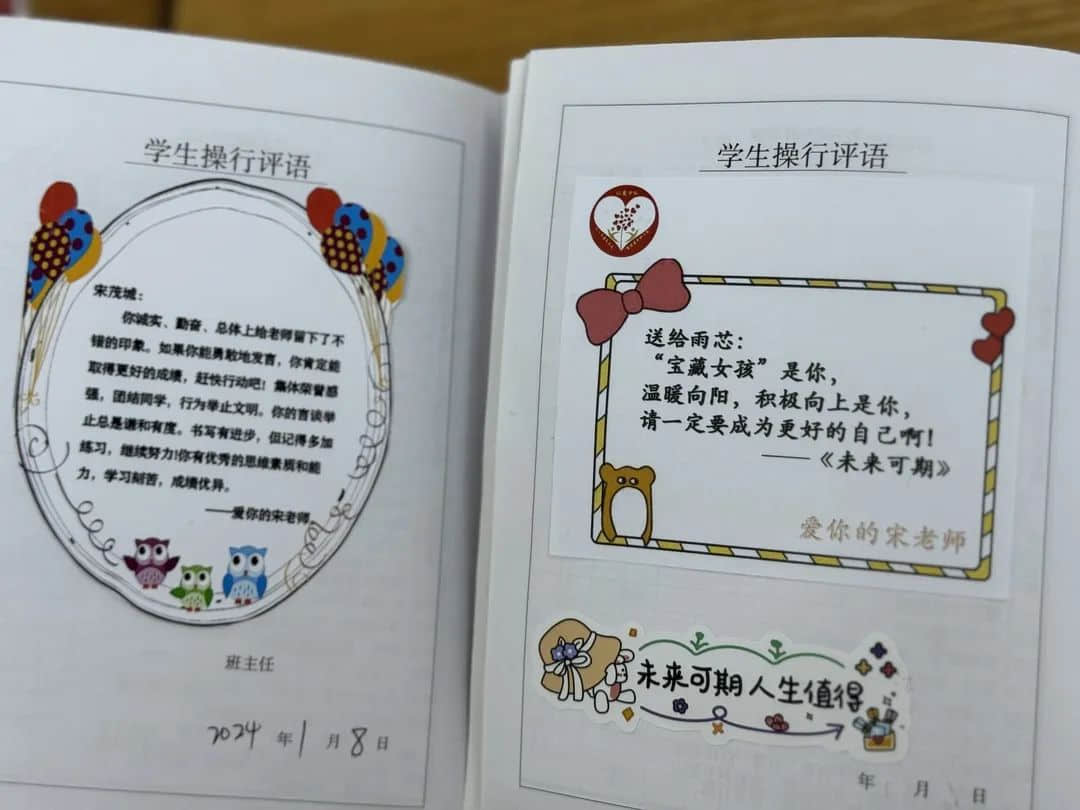 学生操行评语
宋茂城：
你诚实、勤奋、总体上给老师留下了不
错的印象。如果你能勇敢地发言，你肯定能
取得更好的成绩，赶快行动吧！集体荣誉感
强，团结同学，行为举止文明。你的言谈举
止总是谦和有度。书写有进步，但记得多加
练习，继续努力！你有优秀的思维素质和能
力，学习刻苦，成绩优异。
——爱你的宋老师
班主任
2024 年 1 月 8 日
学生操行评语
送给雨芯：
“宝藏女孩”是你，
温暖向阳，积极向上是你，
请一定要成为更好的自己啊！
——《未来可期》
爱你的宋老师
未来可期 人生值得
年 月 日